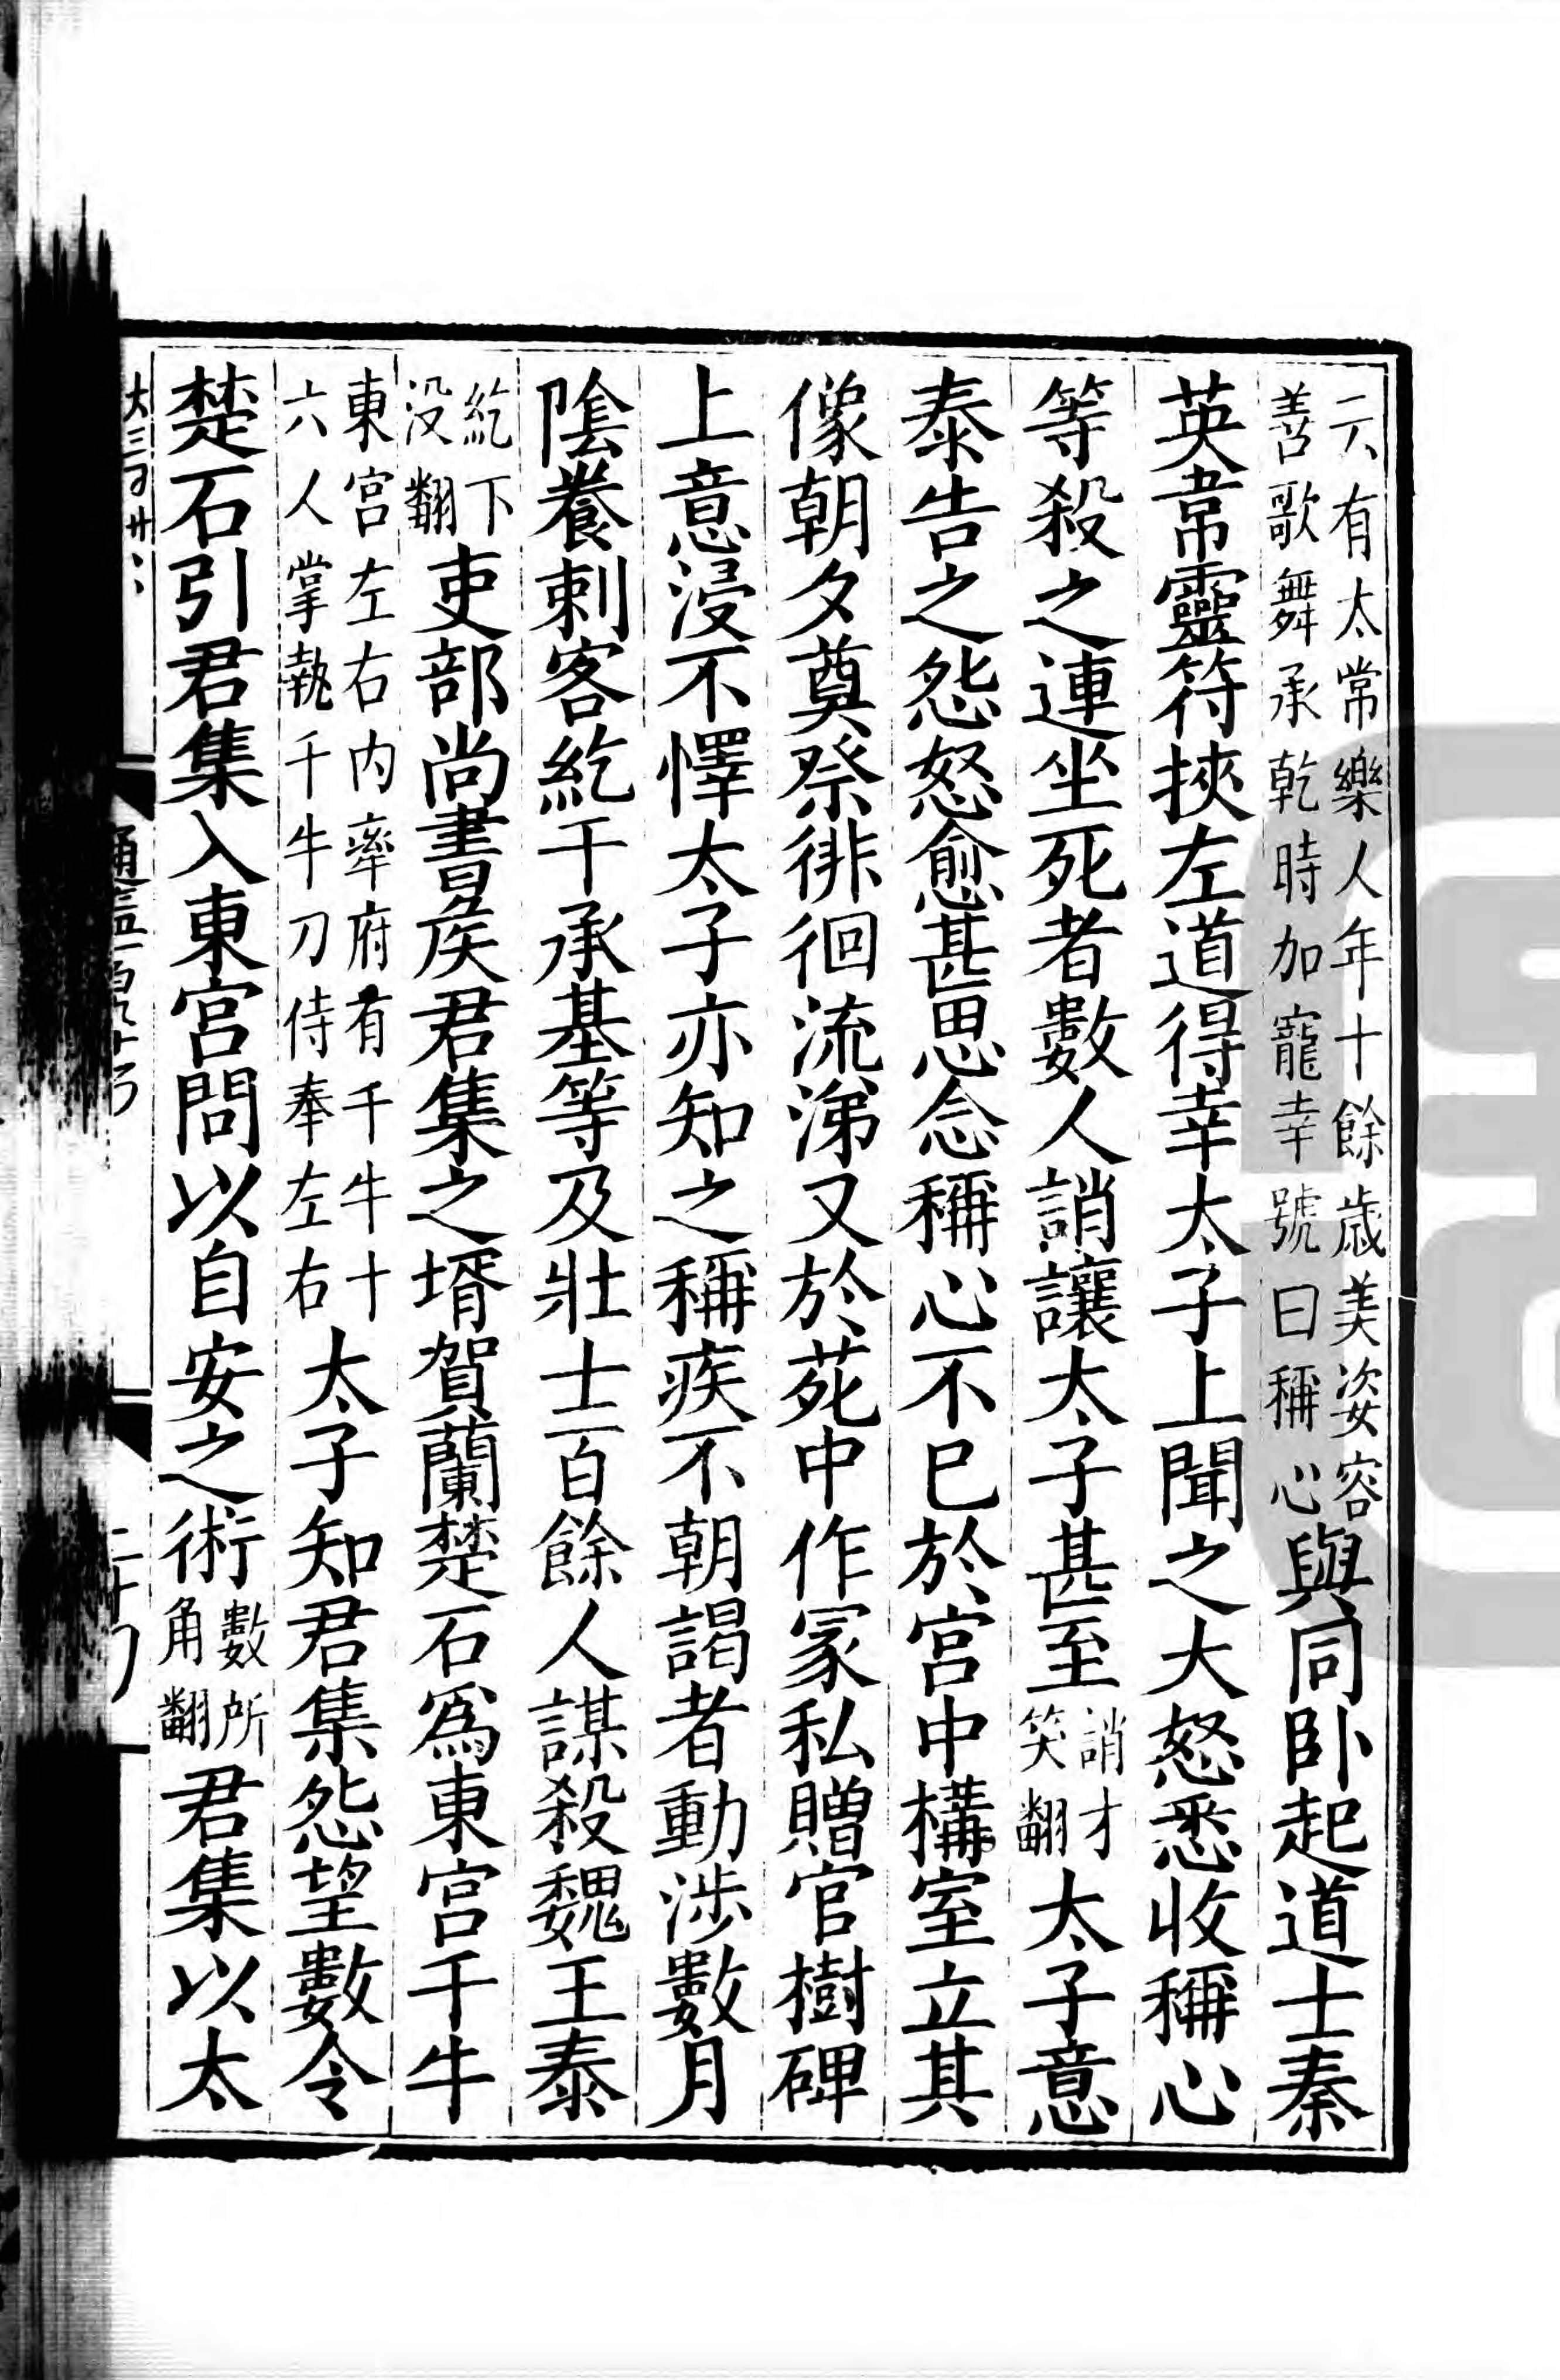 云有太常樂人年十餘歲美姿容善歌舞承乾時加寵幸號曰稱心與同卧起道士秦
英韋靈符挾左道得幸太子上聞之大怒悉收稱心
等殺之連坐死者數人誚讓太子甚至誚才笑翻太子意
泰告之怨怒愈甚思念稱心不已於宫中構室立其
像朝夕奠祭徘徊流涕又於苑中作冢私贈官樹碑
上意浸不懌太子亦知之稱疾不朝謁者動涉數月
陰養刺客紇干承基等及壯士百餘人謀殺魏王泰
紇下没翻吏部尚書侯君集之壻賀蘭楚石爲東宫千牛
東宫左右内率府有千牛十六人掌執千牛刀侍奉左右太子知君集怨望數令
楚石引君集入東宫問以自安之術數所角翻君集以太